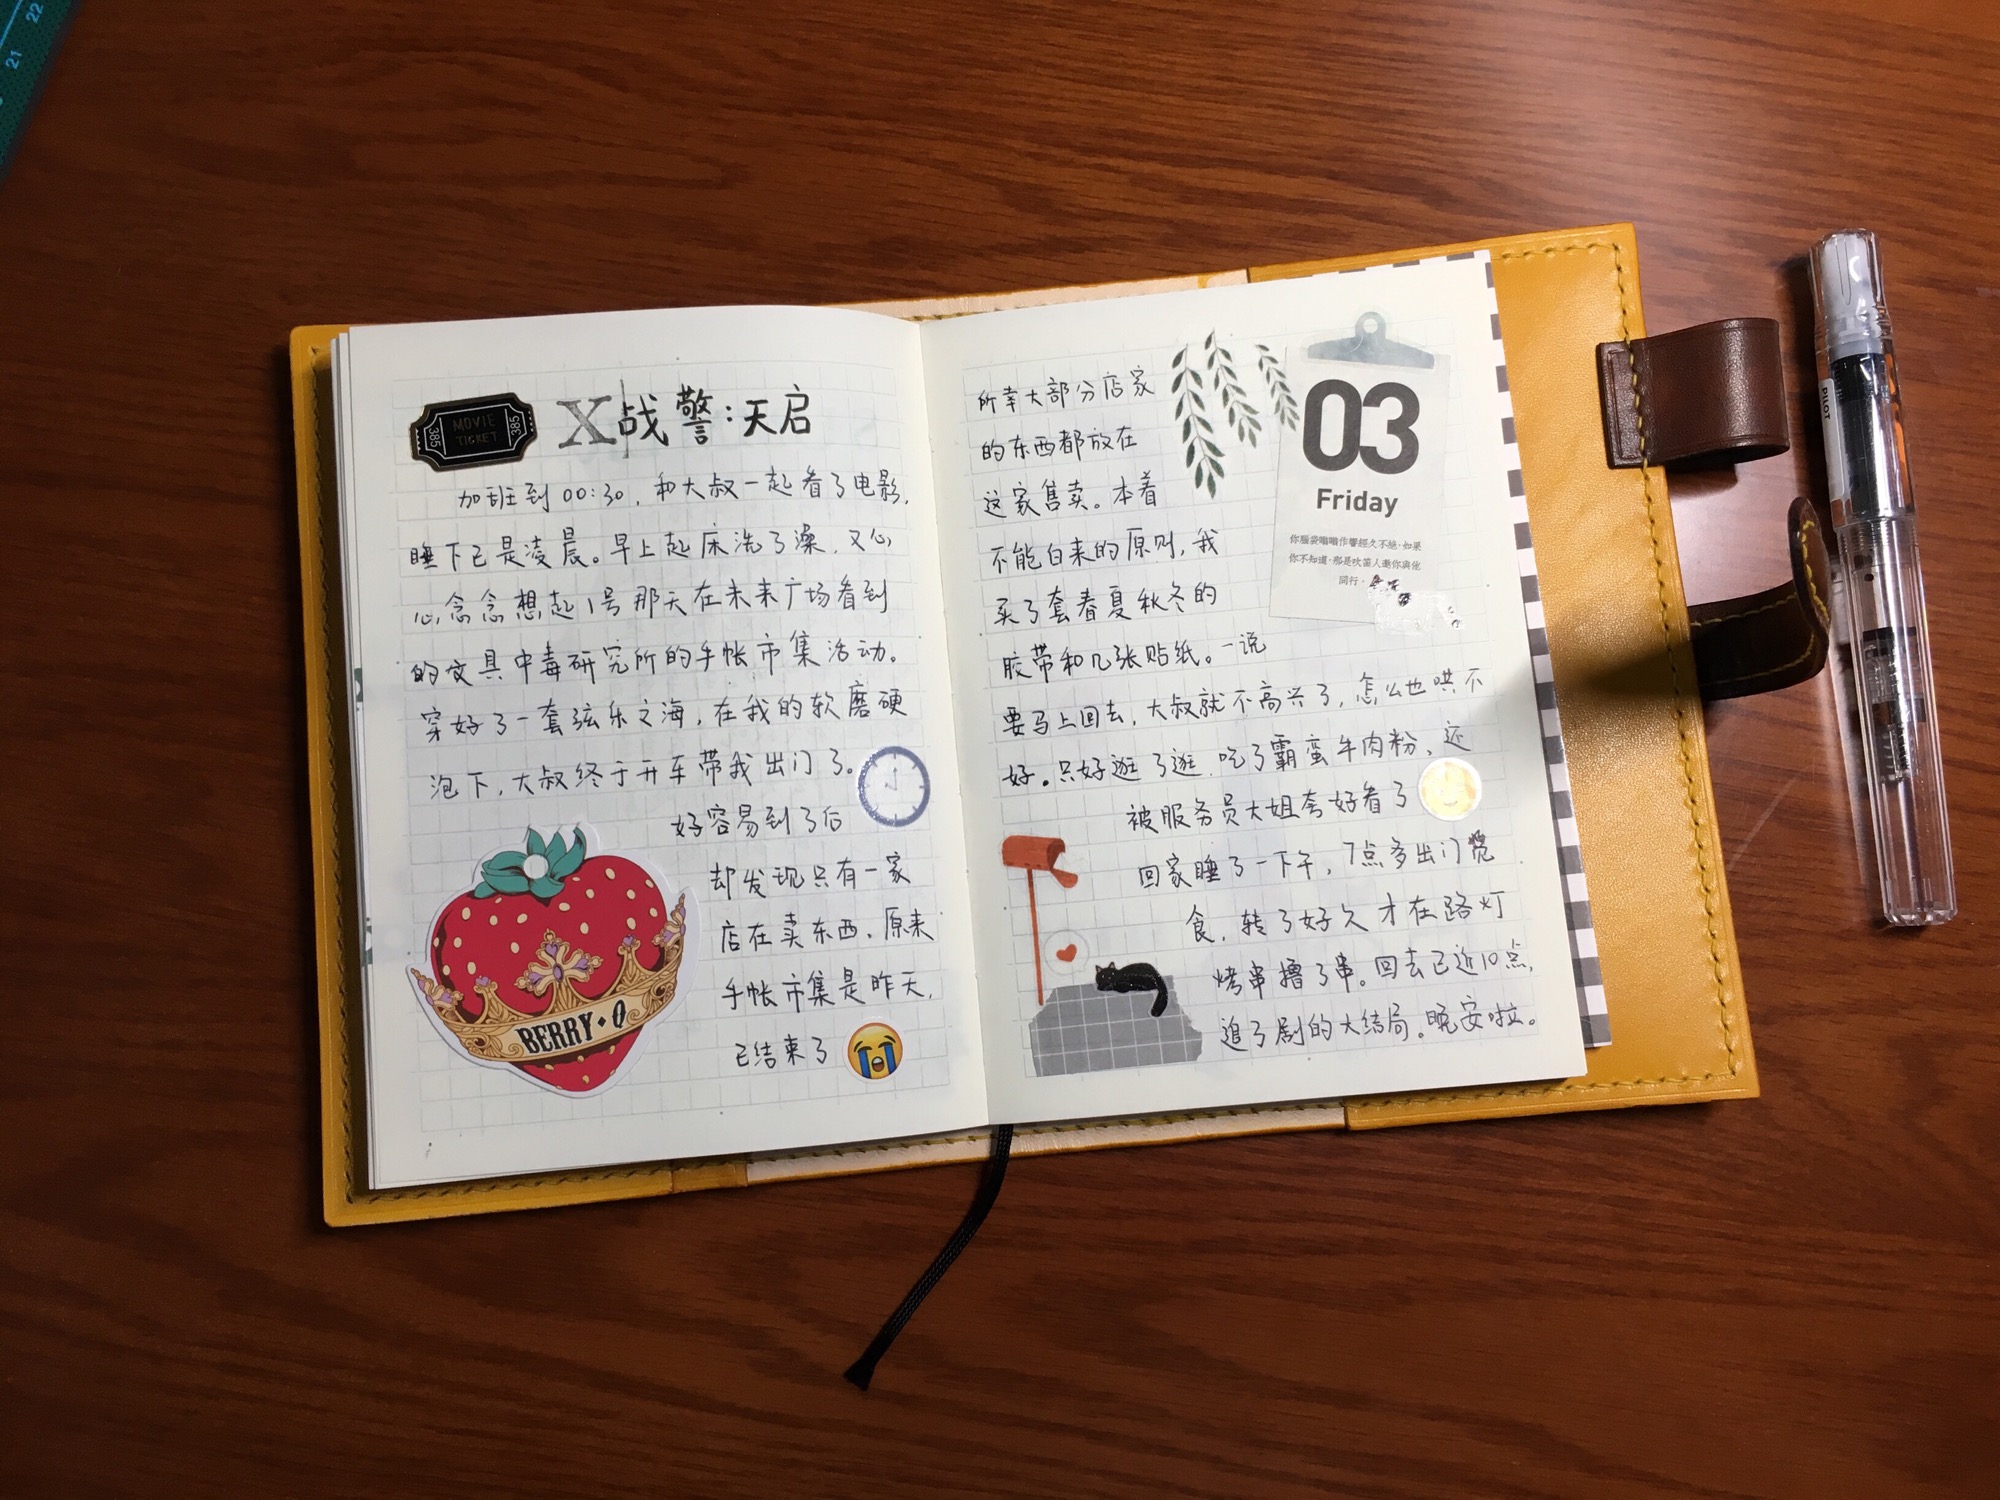 22
21
MOVIE
TICKET
385
385
X战警:天启
加班到00:30,和大叔一起看了电影,
睡下已是凌晨。早上起床洗了澡,又心
心念念想起1号那天在未来广场看到
的文具中毒研究所的手帐市集活动。
穿好了一套弦乐之海,在我的软磨硬
泡下,大叔终于开车带我出门了。
好容易到了后
却发现只有一家
店在卖东西,原来
手帐市集是昨天,
已结束了
BERRY·Q
所幸大部分店家
的东西都放在
这家售卖。本着
不能白来的原则,我
买了套春夏秋冬的
胶带和几张贴纸。一说
要马上回去,大叔就不高兴了,怎么也哄不
好。只好逛了逛,吃了霸蛮牛肉粉,还
被服务员大姐夸好看了
回家睡了一下午,7点多出门觅
食,转了好久才在路灯
烤串撸了串。回去已近10点,
追了剧的大结局。晚安啦。
03
Friday
你腦袋嗡嗡作響經久不絕,如果
你不知道,那是吹笛人邀你與他
同行。
PILOT